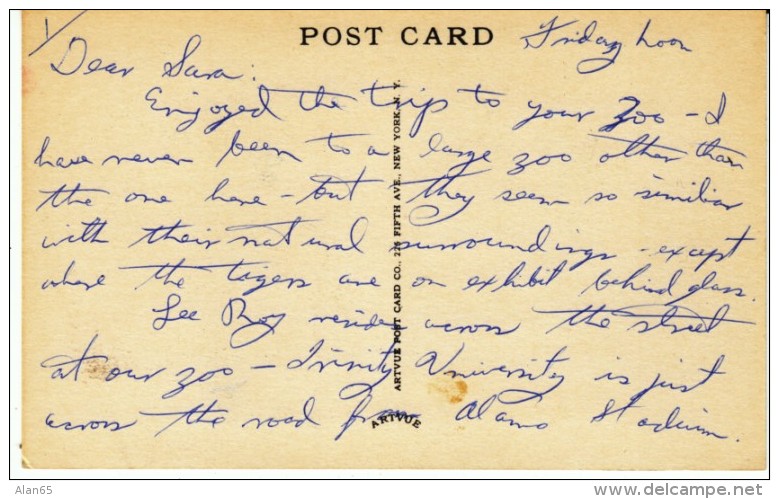 1/
POST CARD
Friday noon
Dear Sara:
Enjoyed the trip to your Zoo - I
have never been to a large zoo other than
the one here - but they seem so similiar
with their natural surroundings - except
where the tigers are on exhibit behind glass.
Lee Roy resides across the street
at our zoo - Trinity University is just
across the road from Alamo Stadium.
ARTVUE POST CARD CO., 225 FIFTH AVE., NEW YORK, N. Y.
ARTVUE
Alan65
www.delcampe.net